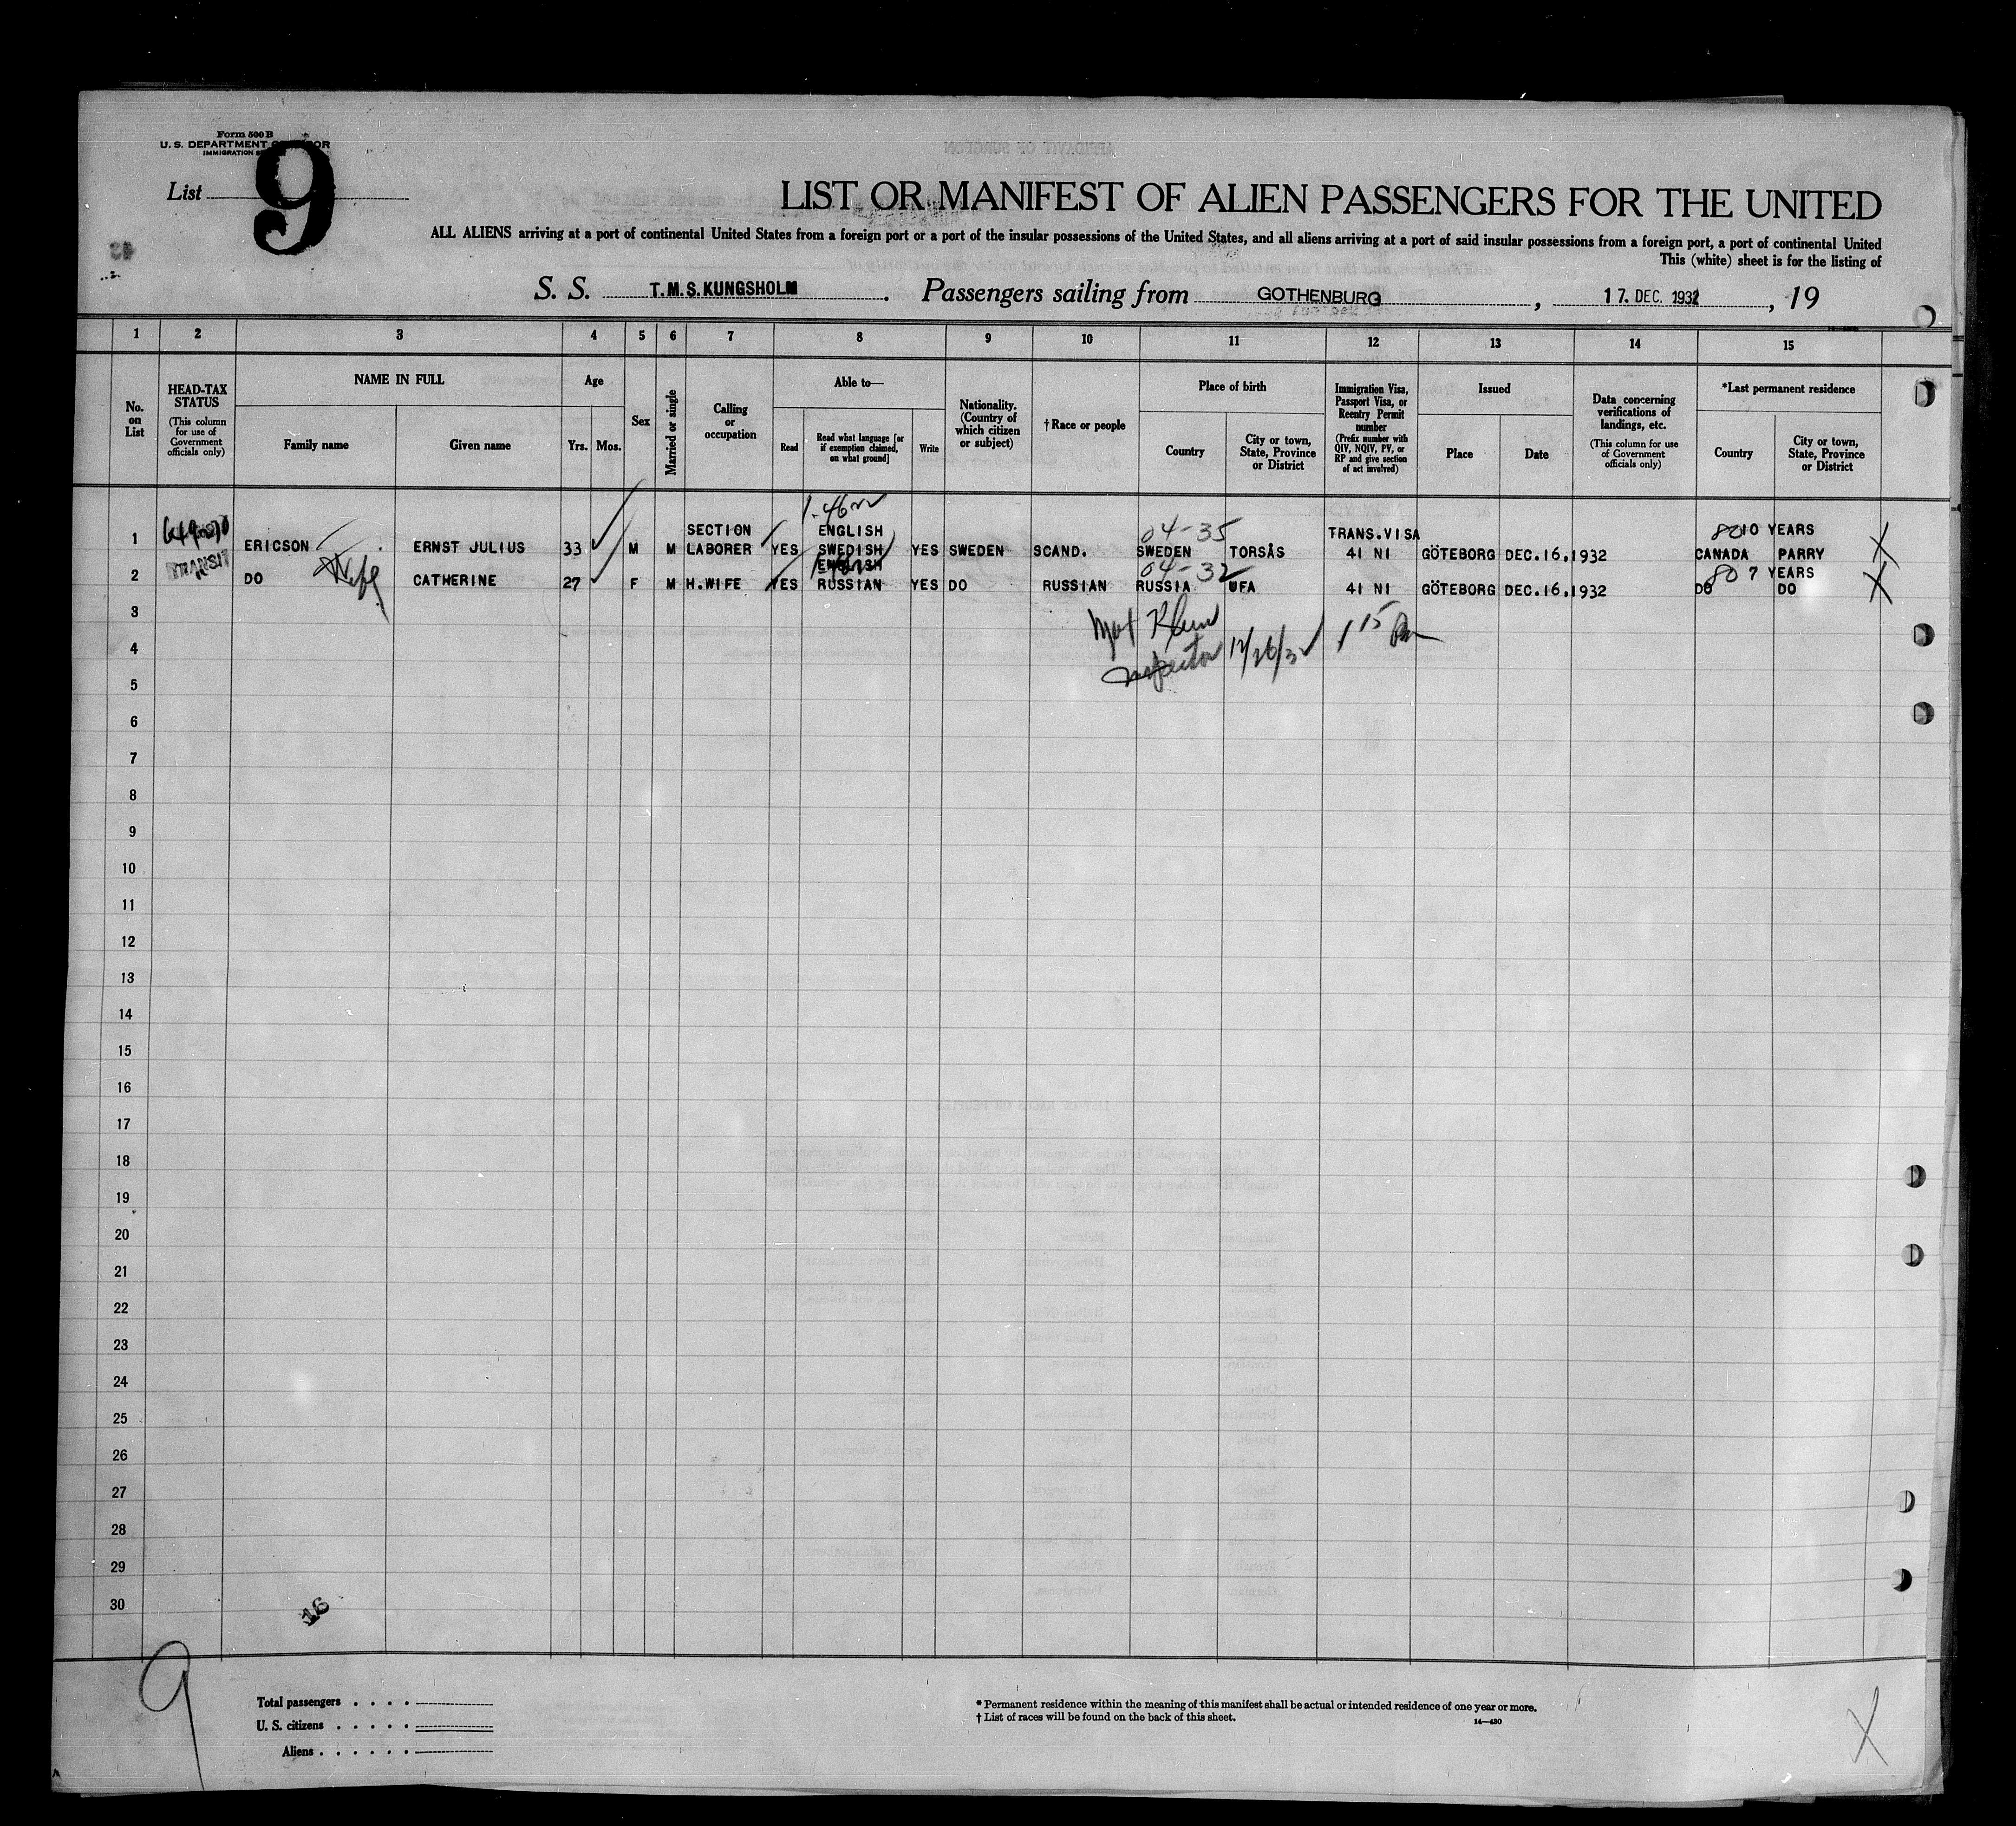 Form 500 B
U. S. DEPARTMENT
IMMIGRATION
List 9
LIST OR MANIFEST OF ALIEN PASSENGERS FOR THE UNITED
ALL ALIENS arriving at a port of continental United States from a foreign port or a port of the insular possessions of the United States, and all aliens arriving at a port of said insular possessions from a foreign port, a port of continental United
This (white) sheet is for the listing of
S. S. T.M.S. KUNGSHOLM. Passengers sailing from GOTHENBURG, 17. DEC. 1932, 19
1 2 3 4 5 6 7 8 9 10 11 12 13 14 15
No. on List
HEAD-TAX STATUS
(This column for use of Government officials only)
NAME IN FULL
Family name Given name
Age
Yrs. Mos.
Sex
Married or single
Calling or occupation
Able to—
Read
Read what language [or if exemption claimed, on what ground]
Write
Nationality. (Country of which citizen or subject)
†Race or people
Place of birth
Country
City or town, State, Province or District
Immigration Visa, Passport Visa, or Reentry Permit number
(Prefix number with QIV, NQIV, PV, or RP and give section of act involved)
Issued
Place Date
Data concerning verifications of landings, etc.
(This column for use of Government officials only)
*Last permanent residence
Country
City or town, State, Province or District
SECTION ENGLISH 04-35 TRANS.VISA 80 10 YEARS
1 ERICSON ERNST JULIUS 33 M M LABORER YES SWEDISH YES SWEDEN SCAND. SWEDEN TORSÅS 41 NI GÖTEBORG DEC.16,1932 CANADA PARRY X
TRANSIT ENGLISH 04-32 80 7 YEARS
2 DO Wife CATHERINE 27 F M H.WIFE YES RUSSIAN YES DO RUSSIAN RUSSIA UFA 41 NI GÖTEBORG DEC.16,1932 DO DO X
3
4 Inspector 12/26/32 1 15 Pm
5
6
7
8
9
10
11
12
13
14
15
16
17
18
19
20
21
22
23
24
25
26
27
28
29
30
16
9
Total passengers . . . .
U. S. citizens . . . . .
Aliens . . . . . .
* Permanent residence within the meaning of this manifest shall be actual or intended residence of one year or more.
† List of races will be found on the back of this sheet.
14—430
X